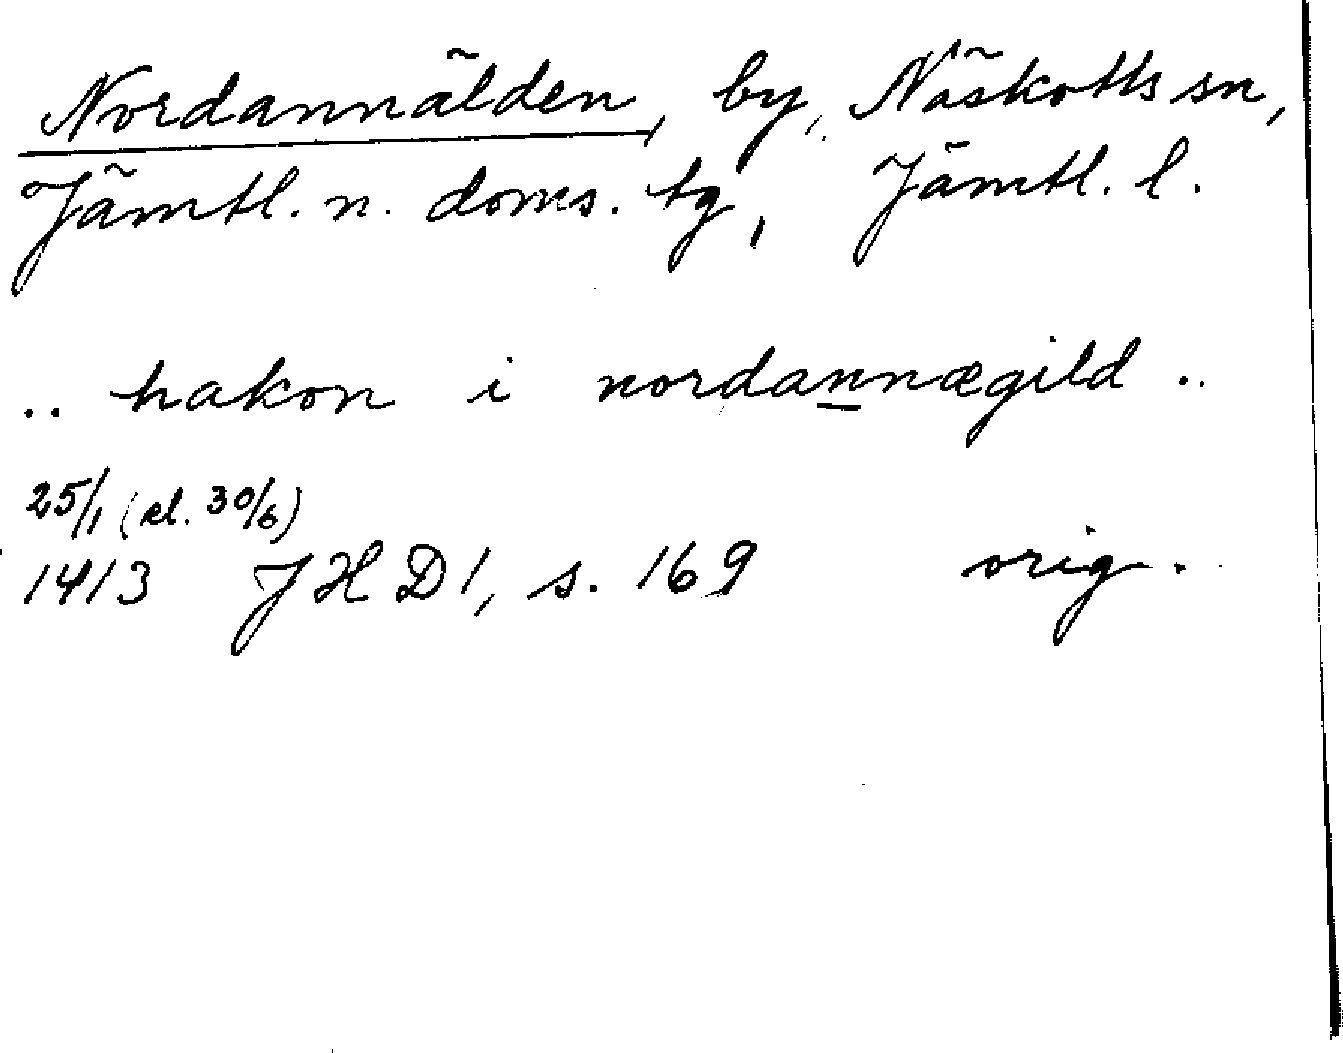 Nordannälden, by, Näskotts sn,
Jämtl. n. doms. tg, Jämtl. l.
.. hakon i nordannægild ..
25/1 (el. 30/6)
1413 JHD1, s. 169 orig.